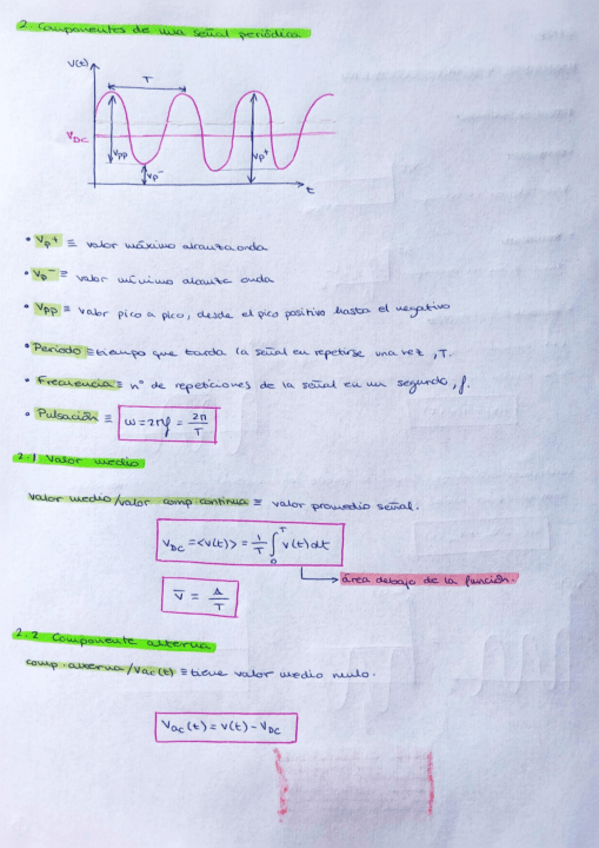 2. Componentes de una señal periódica
V(t)
T
VDC
Vpp
Vp⁻
Vp⁺
t
• Vp⁺ ≡ valor máximo alcanza onda
• Vp⁻ ≡ valor mínimo alcanza onda
• Vpp ≡ valor pico a pico, desde el pico positivo hasta el negativo
• Periodo ≡ tiempo que tarda la señal en repetirse una vez, T.
• Frecuencia ≡ nº de repeticiones de la señal en un segundo, f.
• Pulsación ≡ ω = 2πf = 2π/T
2.1 Valor medio
Valor medio/valor comp. continua ≡ valor promedio señal.
VDC = <v(t)> = 1/T ∫₀ᵀ v(t)dt
área debajo de la función.
V̅ = A/T
2.2 Componente alterna
comp. alterna/Vac(t) ≡ tiene valor medio nulo.
Vac(t) = v(t) - VDC